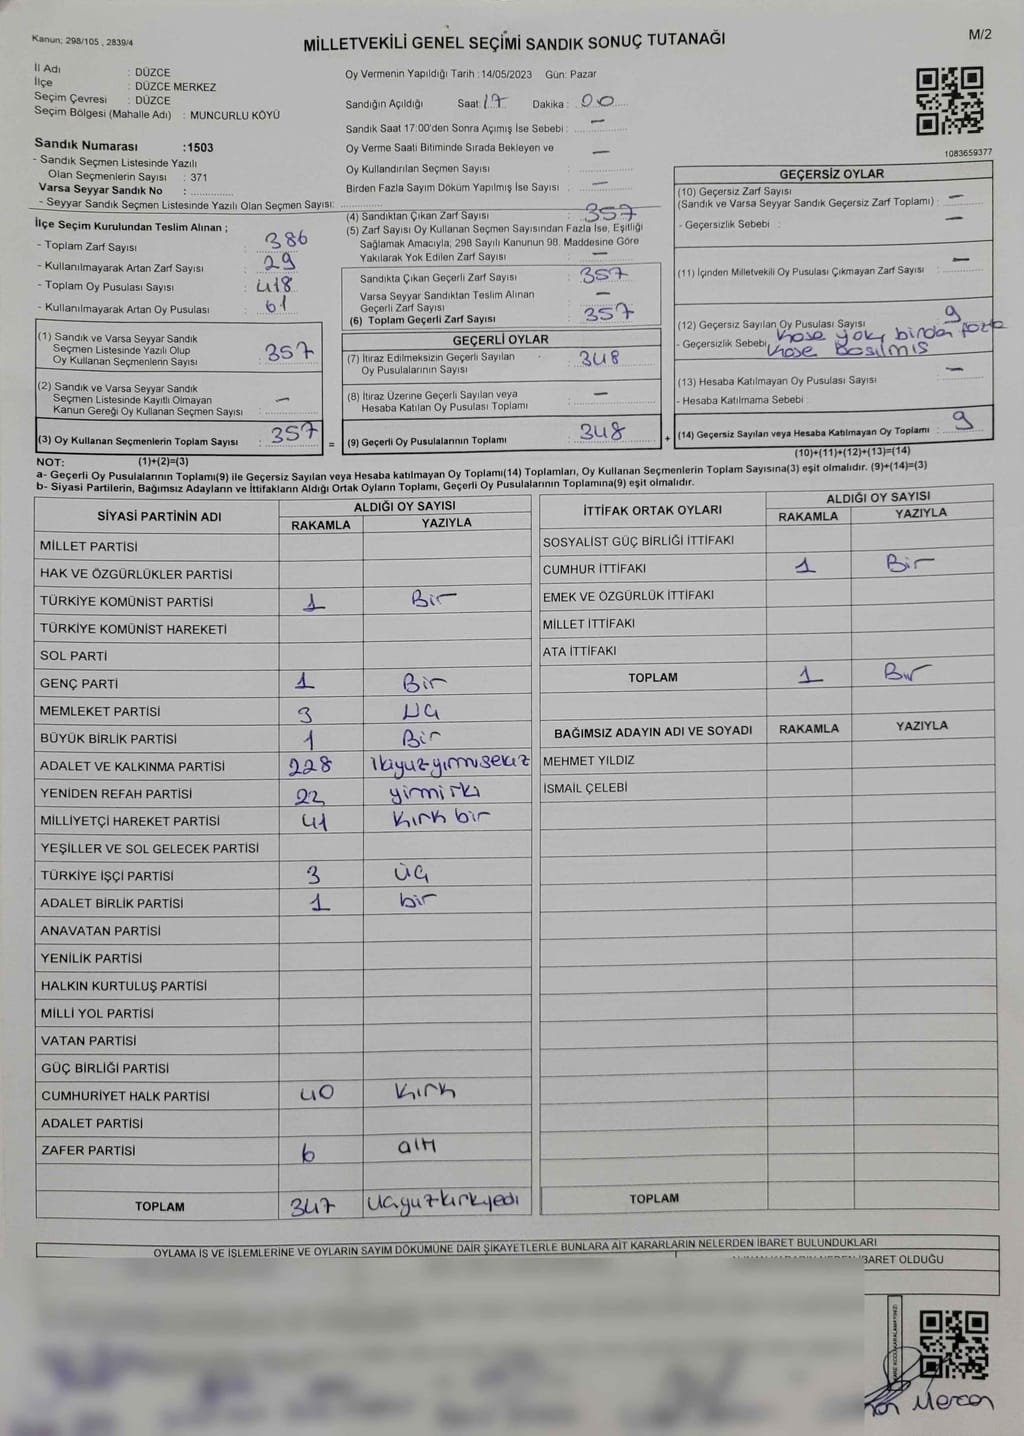 Kanun; 298/105 , 2839/4
MİLLETVEKİLİ GENEL SEÇİMİ SANDIK SONUÇ TUTANAĞI
M/2
İl Adı : DÜZCE
İlçe : DÜZCE MERKEZ
Seçim Çevresi : DÜZCE
Seçim Bölgesi (Mahalle Adı) : MUNCURLU KÖYÜ
Sandık Numarası :1503
- Sandık Seçmen Listesinde Yazılı
Olan Seçmenlerin Sayısı : 371
Varsa Seyyar Sandık No : ..............
- Seyyar Sandık Seçmen Listesinde Yazılı Olan Seçmen Sayısı: ..............
Oy Vermenin Yapıldığı Tarih :14/05/2023 Gün: Pazar
Sandığın Açıldığı Saat: 17 Dakika : 00
Sandık Saat 17:00'den Sonra Açımış İse Sebebi : —
Oy Verme Saati Bitiminde Sırada Bekleyen ve
Oy Kullandırılan Seçmen Sayısı : —
Birden Fazla Sayım Döküm Yapılmış İse Sayısı : —
1083659377
İlçe Seçim Kurulundan Teslim Alınan ;
- Toplam Zarf Sayısı : 386
- Kullanılmayarak Artan Zarf Sayısı : 29
- Toplam Oy Pusulası Sayısı : 418
- Kullanılmayarak Artan Oy Pusulası : 61
(1) Sandık ve Varsa Seyyar Sandık
Seçmen Listesinde Yazılı Olup
Oy Kullanan Seçmenlerin Sayısı : 357
(2) Sandık ve Varsa Seyyar Sandık
Seçmen Listesinde Kayıtlı Olmayan
Kanun Gereği Oy Kullanan Seçmen Sayısı : —
(3) Oy Kullanan Seçmenlerin Toplam Sayısı : 357
(1)+(2)=(3)
(4) Sandıktan Çıkan Zarf Sayısı : 357
(5) Zarf Sayısı Oy Kullanan Seçmen Sayısından Fazla İse, Eşitliği
Sağlamak Amacıyla; 298 Sayılı Kanunun 98. Maddesine Göre
Yakılarak Yok Edilen Zarf Sayısı : —
Sandıkta Çıkan Geçerli Zarf Sayısı : 357
Varsa Seyyar Sandıktan Teslim Alınan
Geçerli Zarf Sayısı : —
(6) Toplam Geçerli Zarf Sayısı : 357
GEÇERLİ OYLAR
(7) İtiraz Edilmeksizin Geçerli Sayılan
Oy Pusulalarının Sayısı : 348
(8) İtiraz Üzerine Geçerli Sayılan veya
Hesaba Katılan Oy Pusulası Toplamı : —
= (9) Geçerli Oy Pusulalarının Toplamı : 348
GEÇERSİZ OYLAR
(10) Geçersiz Zarf Sayısı
(Sandık ve Varsa Seyyar Sandık Geçersiz Zarf Toplamı) : —
- Geçersizlik Sebebi : —
(11) İçinden Milletvekili Oy Pusulası Çıkmayan Zarf Sayısı : —
(12) Geçersiz Sayılan Oy Pusulası Sayısı : 9
- Geçersizlik Sebebi kaşe yok, birden fazla
kaşe basılmış
(13) Hesaba Katılmayan Oy Pusulası Sayısı : —
- Hesaba Katılmama Sebebi :
+ (14) Geçersiz Sayılan veya Hesaba Katılmayan Oy Toplamı : 9
(10)+(11)+(12)+(13)=(14)
NOT:
a- Geçerli Oy Pusulalarının Toplamı(9) ile Geçersiz Sayılan veya Hesaba katılmayan Oy Toplamı(14) Toplamları, Oy Kullanan Seçmenlerin Toplam Sayısına(3) eşit olmalıdır. (9)+(14)=(3)
b- Siyasi Partilerin, Bağımsız Adayların ve İttifakların Aldığı Ortak Oyların Toplamı, Geçerli Oy Pusulalarının Toplamına(9) eşit olmalıdır.
SİYASİ PARTİNİN ADI
ALDIĞI OY SAYISI
RAKAMLA YAZIYLA
MİLLET PARTİSİ
HAK VE ÖZGÜRLÜKLER PARTİSİ
TÜRKİYE KOMÜNİST PARTİSİ 1 Bir
TÜRKİYE KOMÜNİST HAREKETİ
SOL PARTİ
GENÇ PARTİ 1 Bir
MEMLEKET PARTİSİ 3 Üç
BÜYÜK BİRLİK PARTİSİ 1 Bir
ADALET VE KALKINMA PARTİSİ 228 ikiyüzyirmisekiz
YENİDEN REFAH PARTİSİ 22 yirmiiki
MİLLİYETÇİ HAREKET PARTİSİ 41 kırk bir
YEŞİLLER VE SOL GELECEK PARTİSİ
TÜRKİYE İŞÇİ PARTİSİ 3 üç
ADALET BİRLİK PARTİSİ 1 bir
ANAVATAN PARTİSİ
YENİLİK PARTİSİ
HALKIN KURTULUŞ PARTİSİ
MİLLİ YOL PARTİSİ
VATAN PARTİSİ
GÜÇ BİRLİĞİ PARTİSİ
CUMHURİYET HALK PARTİSİ 40 kırk
ADALET PARTİSİ
ZAFER PARTİSİ 6 altı
TOPLAM 347 üçyüzkırkyedi
İTTİFAK ORTAK OYLARI
ALDIĞI OY SAYISI
RAKAMLA YAZIYLA
SOSYALİST GÜÇ BİRLİĞİ İTTİFAKI
CUMHUR İTTİFAKI 1 Bir
EMEK VE ÖZGÜRLÜK İTTİFAKI
MİLLET İTTİFAKI
ATA İTTİFAKI
TOPLAM 1 Bir
BAĞIMSIZ ADAYIN ADI VE SOYADI RAKAMLA YAZIYLA
MEHMET YILDIZ
İSMAİL ÇELEBİ
TOPLAM
OYLAMA İŞ VE İŞLEMLERİNE VE OYLARIN SAYIM DÖKÜMÜNE DAİR ŞİKAYETLERLE BUNLARA AİT KARARLARIN NELERDEN İBARET BULUNDUKLARI
İBARET OLDUĞU
Mercan